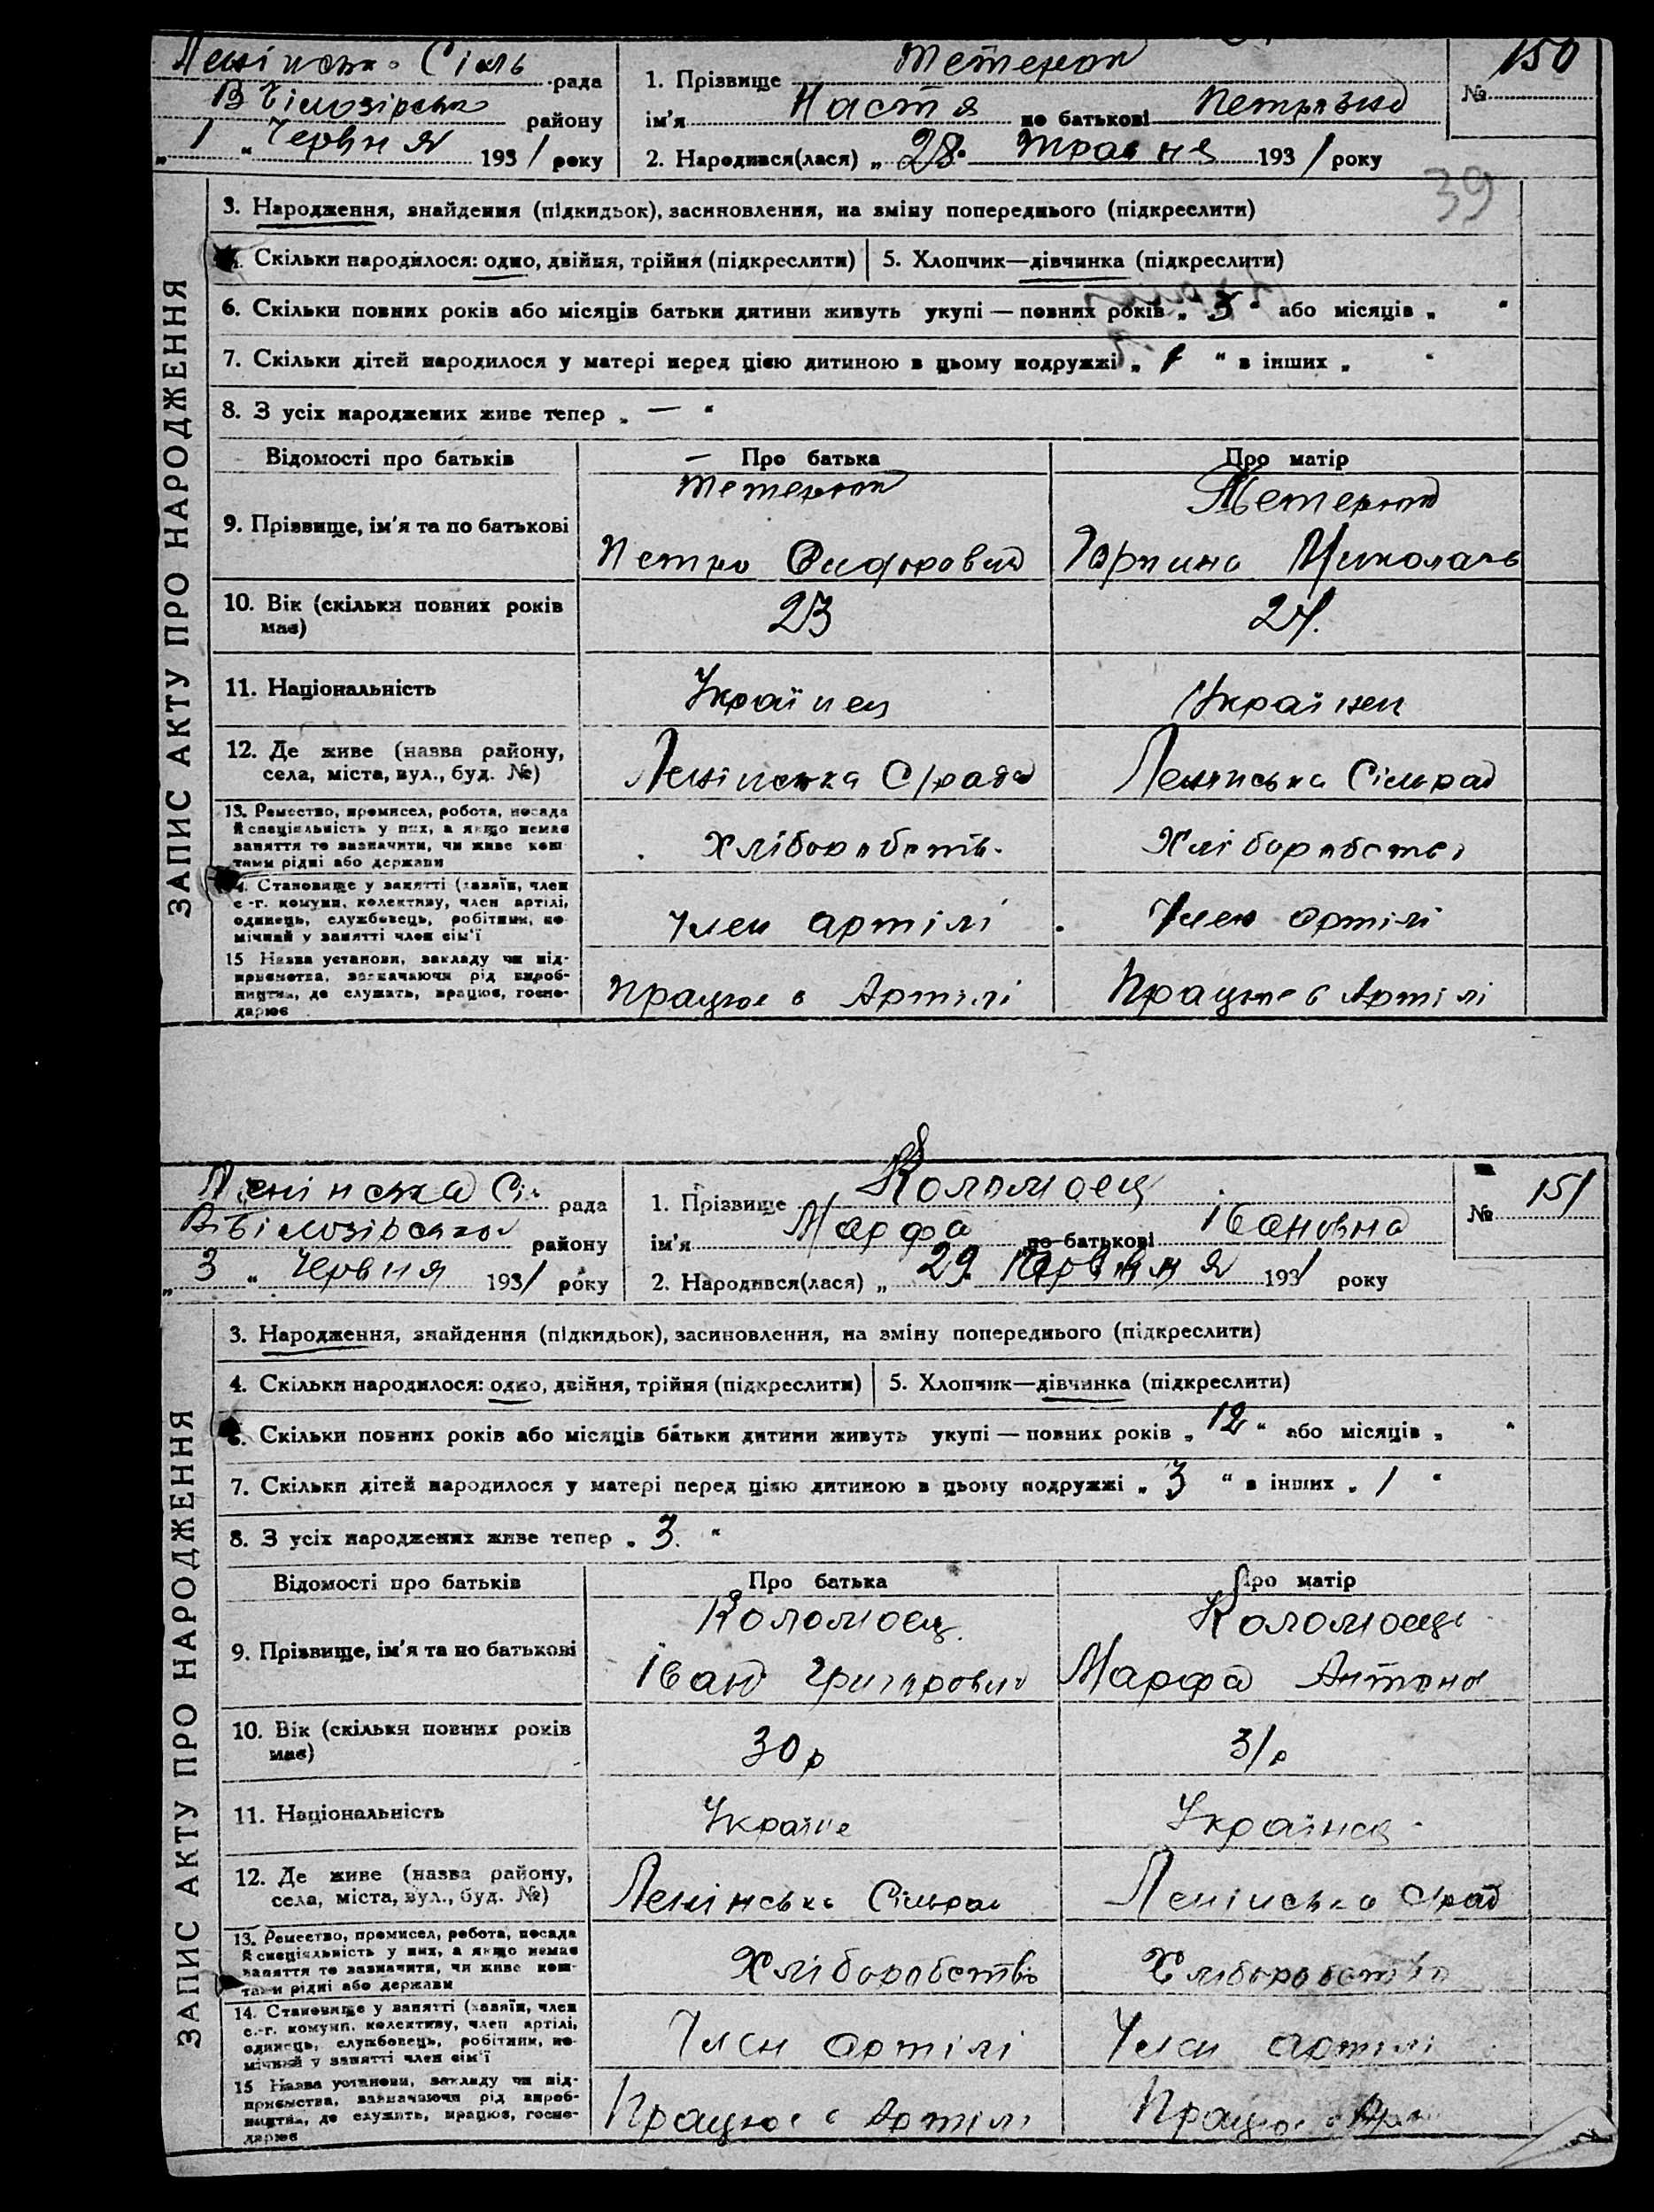 Ленінська Сіль рада
В Білозірська району
„ 1 “ Червня 1931 року
1. Прізвище
ім'я Настя по батькові Петрівна
2. Народився(лася) „ 28 “ Травня 1931 року
№ 150
39
ЗАПИС АКТУ ПРО НАРОДЖЕННЯ
3. Народження, знайдення (підкидьок), засиновлення, на зміну попереднього (підкреслити)
4. Скільки народилося: одно, двійня, трійня (підкреслити) 5. Хлопчик—дівчинка (підкреслити)
6. Скільки повних років або місяців батьки дитини живуть укупі — повних років „ 3 “ або місяців „ “
7. Скільки дітей народилося у матері перед цією дитиною в цьому подружжі „ 1 “ в інших „ “
8. З усіх народжених живе тепер „ — “
Відомості про батьків Про батька Про матір
9. Прізвище, ім'я та по батькові
Петро
10. Вік (скільки повних років має) 23 21
11. Національність Українец Українец
12. Де живе (назва району, села, міста, вул., буд. №) Ленінська С/рада Ленінська Сільрад
13. Ремество, промисел, робота, посада
й спеціяльність у них, а якщо немає
заняття то зазначити, чи живе кош-
тами рідні або держави
Хліборобств. Хліборобство
14. Становище у занятті (хазяїн, член
с.-г. комуни, колективу, член артілі,
одинець, службовець, робітник, по-
мічний у занятті член сім'ї
Член артілі Член артілі
15 Назва установи, закладу чи під-
приємства, зазначаючи рід вироб-
ництва, де служить, працює, госпо-
дарює
Працює в Артілі Працює в Артілі
Ленінська Сі рада
В Білозірської району
„ 3 “ Червня 1931 року
1. Прізвище Коломоец
ім'я Марфа по батькові Івановна
2. Народився(лася) „ 29 1931 року
№ 151
ЗАПИС АКТУ ПРО НАРОДЖЕННЯ
3. Народження, знайдення (підкидьок), засиновлення, на зміну попереднього (підкреслити)
4. Скільки народилося: одно, двійня, трійня (підкреслити) 5. Хлопчик—дівчинка (підкреслити)
6. Скільки повних років або місяців батьки дитини живуть укупі — повних років „ 12 “ або місяців „ “
7. Скільки дітей народилося у матері перед цією дитиною в цьому подружжі „ 3 “ в інших „ 1 “
8. З усіх народжених живе тепер „ 3. “
Відомості про батьків Про батька Про матір
Коломоец Коломоец
9. Прізвище, ім'я та по батькові
Іван Григорович Марфа Антоно
10. Вік (скільки повних років має) 30 р 31 р
11. Національність Украінe Українец
12. Де живе (назва району, села, міста, вул., буд. №) Ленінська Сільрад Ленінська С/рад
13. Ремество, промисел, робота, посада
й спеціяльність у них, а якщо немає
заняття то зазначити, чи живе кош-
тами рідні або держави
Хліборобство Хліборобство
14. Становище у занятті (хазяїн, член
с.-г. комуни, колективу, член артілі,
одинець, службовець, робітник, по-
мічний у занятті член сім'ї
Член артілі Член артілі
15 Назва установи, закладу чи під-
приємства, зазначаючи рід вироб-
ництва, де служить, працює, госпо-
дарює
Працює в Артілі Працює в